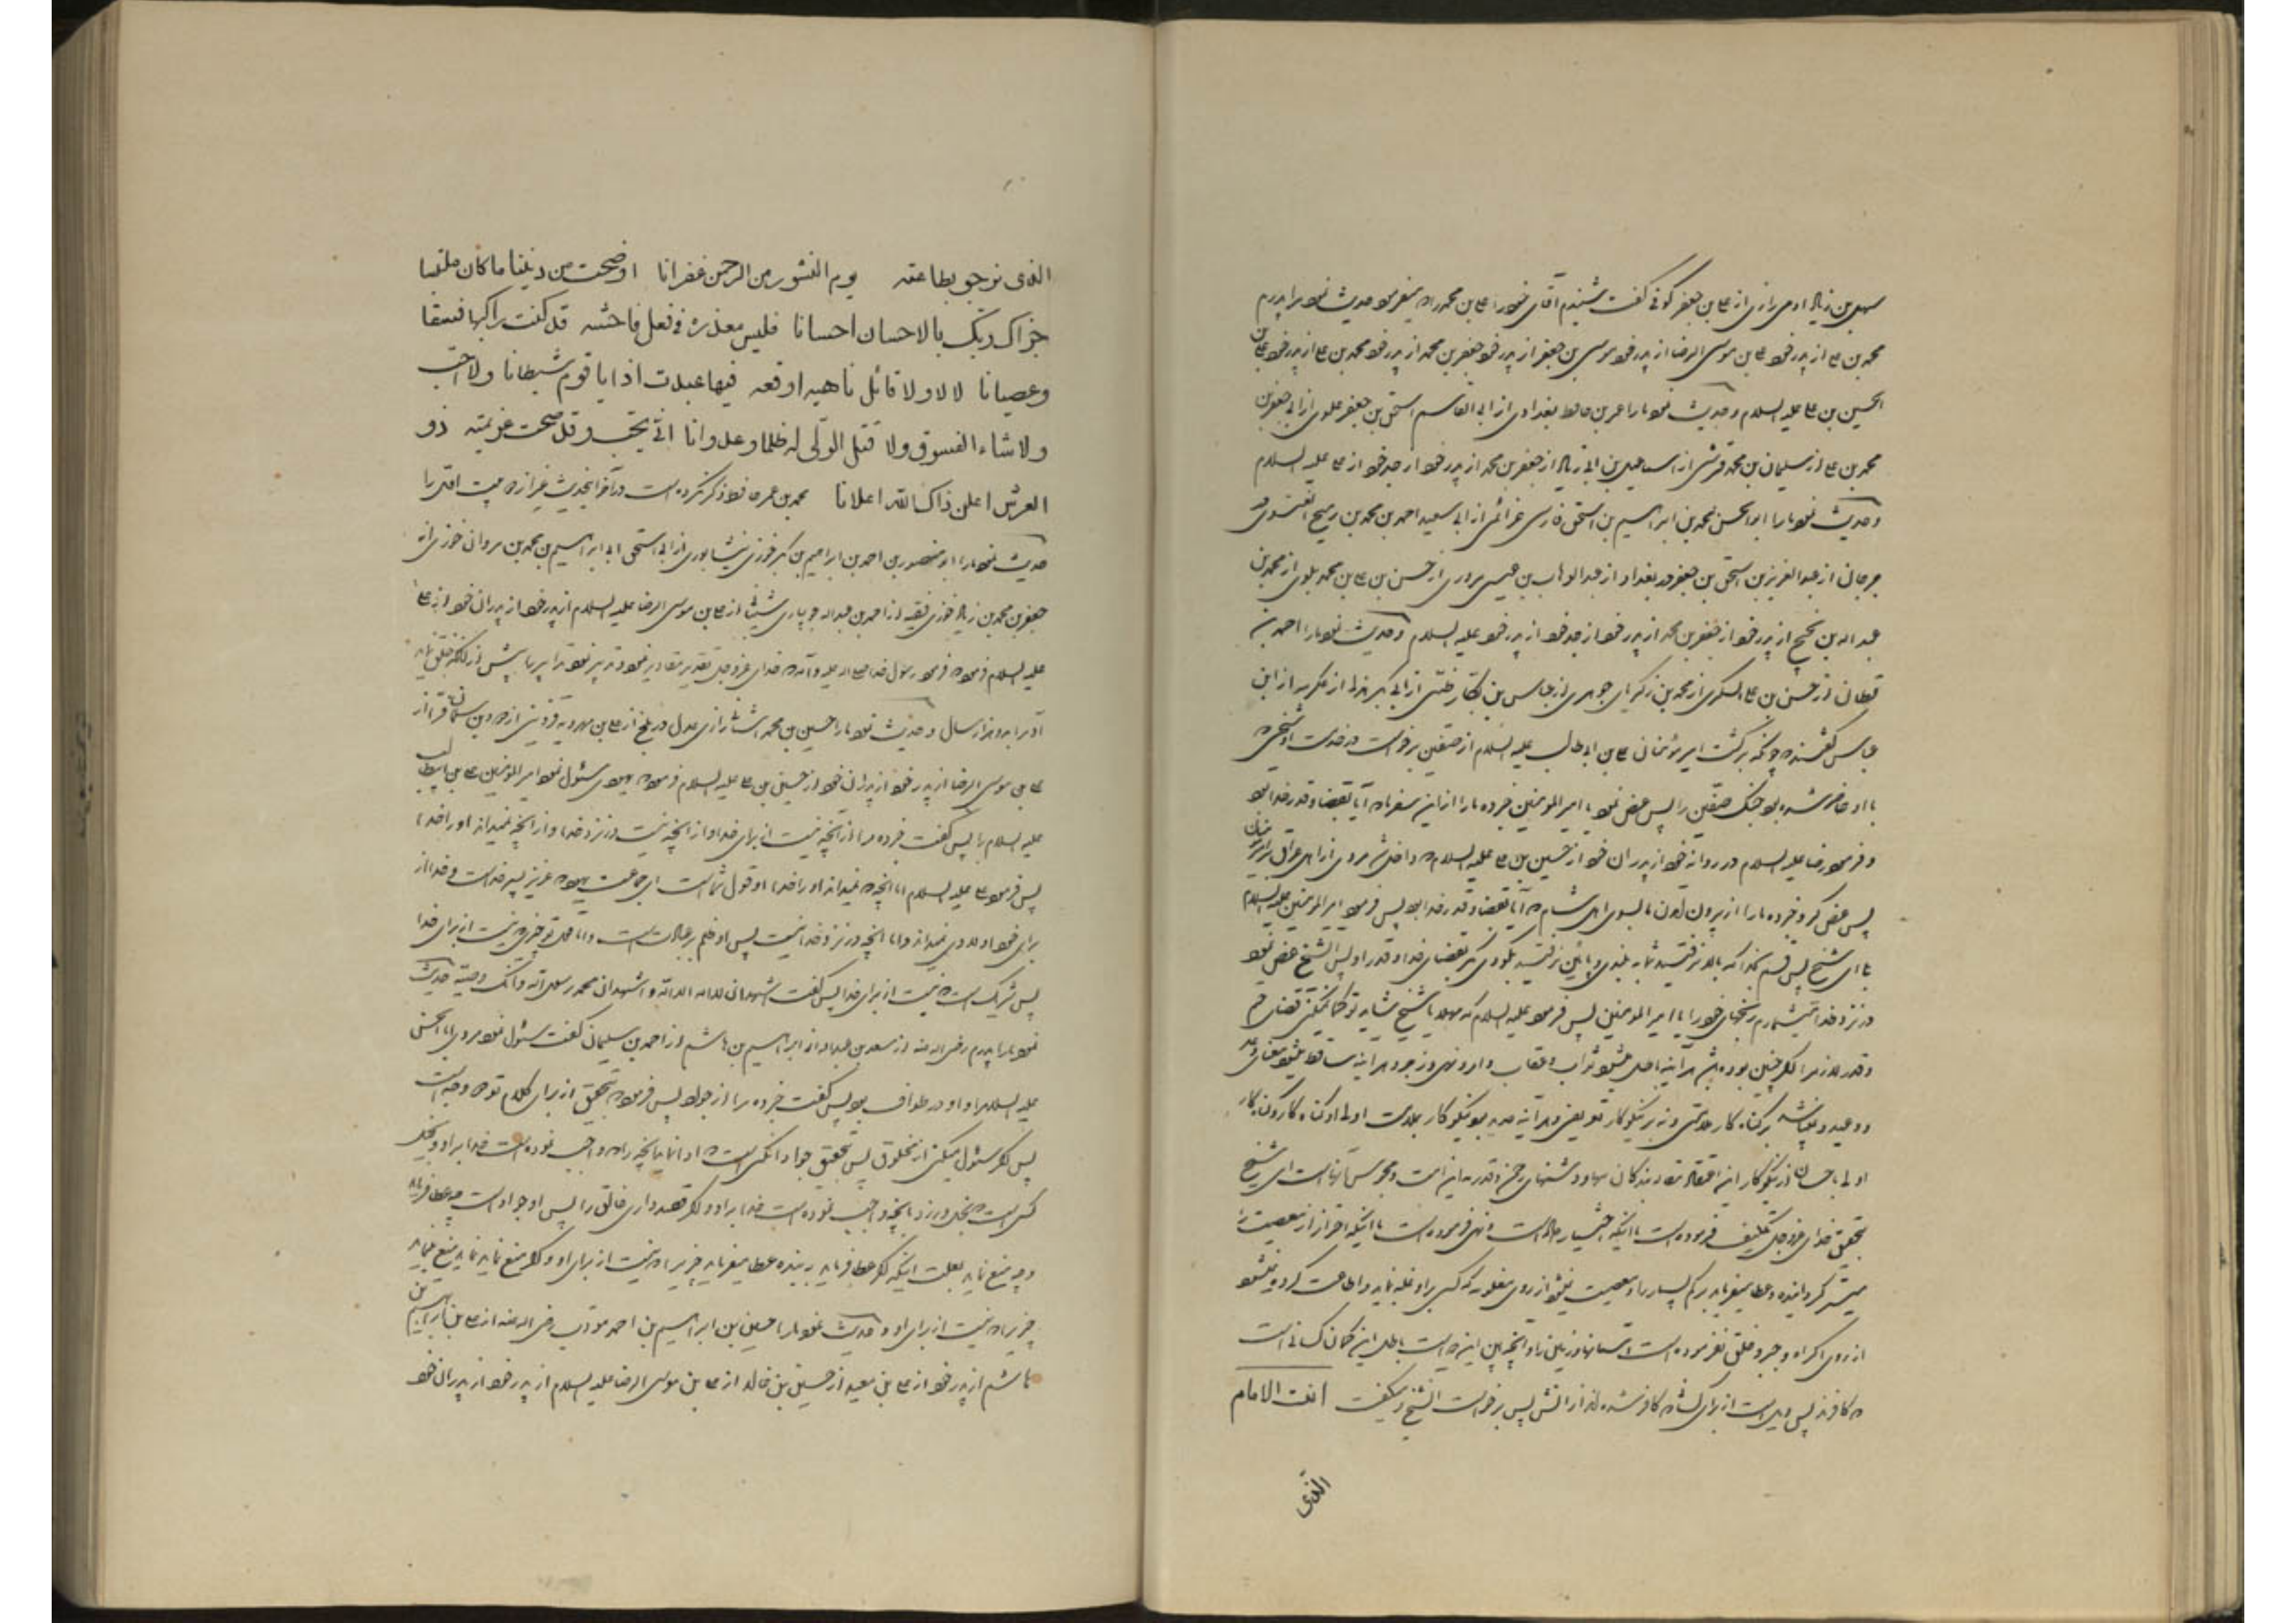 سهل بن زیاد ادمی رازی از علی بن جعفر کوفی گفت شنیدم آقای خود را علی بن محمد را که میفرمود حدیث نمود مرا پدرم
محمد بن علی از پدر خود علی بن موسی الرضا از پدر خود موسی بن جعفر از پدر خود جعفر بن محمد از پدر خود محمد بن علی از پدر خود علی بن
الحسین بن علی علیه السلام و حدیث نمود ما را عمر بن حافظ بغدادی از ابی القاسم اسحق بن جعفر علوی از ابی جعفر بن
محمد بن علی از سلیمان بن محمد قرشی از اسماعیل بن ابی زیاد از جعفر بن محمد از پدر خود از جد خود از علی علیه السلام
و حدیث نمود ما را ابو الحسن محمد بن ابراهیم بن اسحق فارسی عزائمی از ابی سعید احمد بن محمد بن رمیح النسوی
جرجانی از عبد العزیز بن اسحق بن جعفر در بغداد از عبد الوهاب بن عیسی مروزی از حسن بن علی بن محمد بلوی از محمد بن
عبد اله بن نجیح از پدر خود از جعفر بن محمد از پدر خود از جد خود از پدر خود علیه السلام و حدیث نمود ما را احمد بن
قطان از حسن بن علی السکری از محمد بن زکریای جوهری از عباس بن بکار ضبی از ابی بکر هذلی از عکرمه از ابن
عباس گفتند که چونکه برگشت امیر مؤمنان علی بن ابیطالب علیه السلام از صفین برخواست در خدمت او شیخی که
با او حاضر شده بود جنگ صفین را پس عرض نمود یا امیر المومنین خبر ده ما را از این سفر ما که آیا بقضا و قدر خدا بود
و فرمود رضا علیه السلام در روایة خود از پدران خود از حسین بن علی علیه السلام که داخل شد مردی از اهل عراق بر امیر مؤمنان
پس عرض کرد خبر ده ما را از بیرون رفتن ما بسوی اهل شام که آیا بقضا و قدر خدا بود پس فرمود امیر المومنین علیه السلام
با ای شیخ پس قسم بخدا که بالا نرفتید شما به بلندی و پائین نرفتید بگودی مگر بقضای خدا و قدر او پس الشیخ عرض نمود
در نزد خدا میشمارم رنجهای خود را یا امیر المومنین پس فرمود علیه السلام که مهلا یا شیخ شاید تو گمان میکنی قضای حتم
و قدر لازم را اگر چنین بوده باشد هر آینه باطل میشود ثواب و عقاب و امر و نهی و زجر و هر آینه ساقط میشود معنای وعد
و وعید و نمیباشد بر گناه کار ملامتی و نه بر نیکو کار تعریفی و هر آینه میبود نیکو کار بملامت اولی از گناه کار و گناه کار
اولی باحسان از نیکو کار این اعتقاد عبادت کنندگان بتها و دشمنهای رحمن و قدریه این امت و مجوس آنهاست ای شیخ
بتحقیق خدای عز و جل تکلیف فرموده است با اینکه اختیار حاصل است و نهی فرموده است با اینکه احتراز از معصیت را
میسر گردانیده و عطا میفرماید بر کم بسیار را و معصیت نمیشود از روی مغلوبیه که کسی بر او غلبه نماید و اطاعت کرده نمیشود
از روی اکراه و جبر و خلق نفرموده است آسمانها و زمین را و آنچه ما بین این دو است باطل این گمان کسانی است
که کافرند پس ویل است از برای کسانیکه کافر شده اند از آتش پس برخواست الشیخ و میگفت انت الامام
الذی
الذی نرجو بطاعته یوم النشور من الرحمن غفرانا اوضحت من دیننا ما کان ملتبسا
جزاک ربک بالاحسان احسانا فلیس معذرة فی فعل فاحشه قد کنت راکبها فسقا
و عصیانا لا لا ولا قائل ناهیه اوقعه فیها عبدت اذا یا قوم شیطانا ولا احب
ولا شاء الفسوق ولا قتل الولی له ظلما و عدوانا انی یحب و قد صحت عزیمته ذو
العرش اعلن ذاک الله اعلانا محمد بن عمر حافظ ذکر نکرده است در آخر این حدیث غیر از دو بیت اول را
حدیث نمود ما را ابو منصور بن احمد بن ابراهیم بن بکر خوزی نیشابوری از ابی اسحق ابی ابراهیم بن محمد بن مروان خوزی از
جعفر بن محمد بن زیاد خوزی فقیه از احمد بن عبد اله جویباری شیبانی از علی بن موسی الرضا علیه السلام از پدر خود از پدران خود از علی
علیه السلام فرمود که فرمود رسول خدا صلی اله علیه و آله که خدای عز و جل تقدیر مقادیر نمود و تدبیر نمود تدابیر را پیش از آنکه خلق نماید
آدم را بدو هزار سال و حدیث نمود ما را حسین بن محمد اشنانی رازی عدل در بلخ از علی بن مهرویه قزوینی از داود بن سلیمان فرا از
علی بن موسی الرضا از پدر خود از پدران خود از حسین بن علی علیه السلام فرمود که یهودی سئوال نمود امیر المومنین علی بن ابیطالب
علیه السلام را پس گفت خبر ده مرا از آنچه نیست از برای خدا و از آنچه نیست در نزد خدا و از آنچه نمیداند او را خدا
پس فرمود علی علیه السلام اما آنچه که نمیداند او را خدا او قول شماست ای جماعت یهود که عزیز پسر خداست و خدا از
برای خود اولادی نمیداند و اما آنچه در نزد خدا نیست پس او ظلم بر عبادست و اما قول تو چیزی که نیست از برای خدا
پس شریک است که نیست از برای خدا پس گفت اشهد ان لا اله الا الله و اشهد ان محمد رسول الله و انک وصیه حدیث
نمود ما را پدرم رضی اله عنه از سعد بن عبد اله از ابراهیم بن هاشم از احمد بن سلیمان گفت سئوال نمود مردی ابا الحسن
علیه السلام را و او در طواف بود پس گفت خبر ده مرا از جواد پس فرمود که بتحقیق از برای کلام تو دو وجه است
پس اگر سئوال میکنی از مخلوق پس بتحقیق جواد آنکسی است که ادا نماید آنچه را که واجب نموده است خدا بر او و بخیل
کسی است که بخل ورزد بآنچه واجب نموده است خدا بر او و اگر قصد داری خالق را پس او جواد است چه عطا فرماید
و چه منع نماید بعلت اینکه اگر عطا فرماید ببنده عطا میفرماید چیزیرا که نیست از برای او و اگر منع نماید منع مینماید
چیزیرا که نیست از برای او و حدیث نمود ما را حسین بن ابراهیم بن احمد مؤدب رضی اله عنه از علی بن ابراهیم بن
هاشم از پدر خود از علی بن معبد از حسین بن خالد از علی بن موسی الرضا علیه السلام از پدر خود از پدران خود